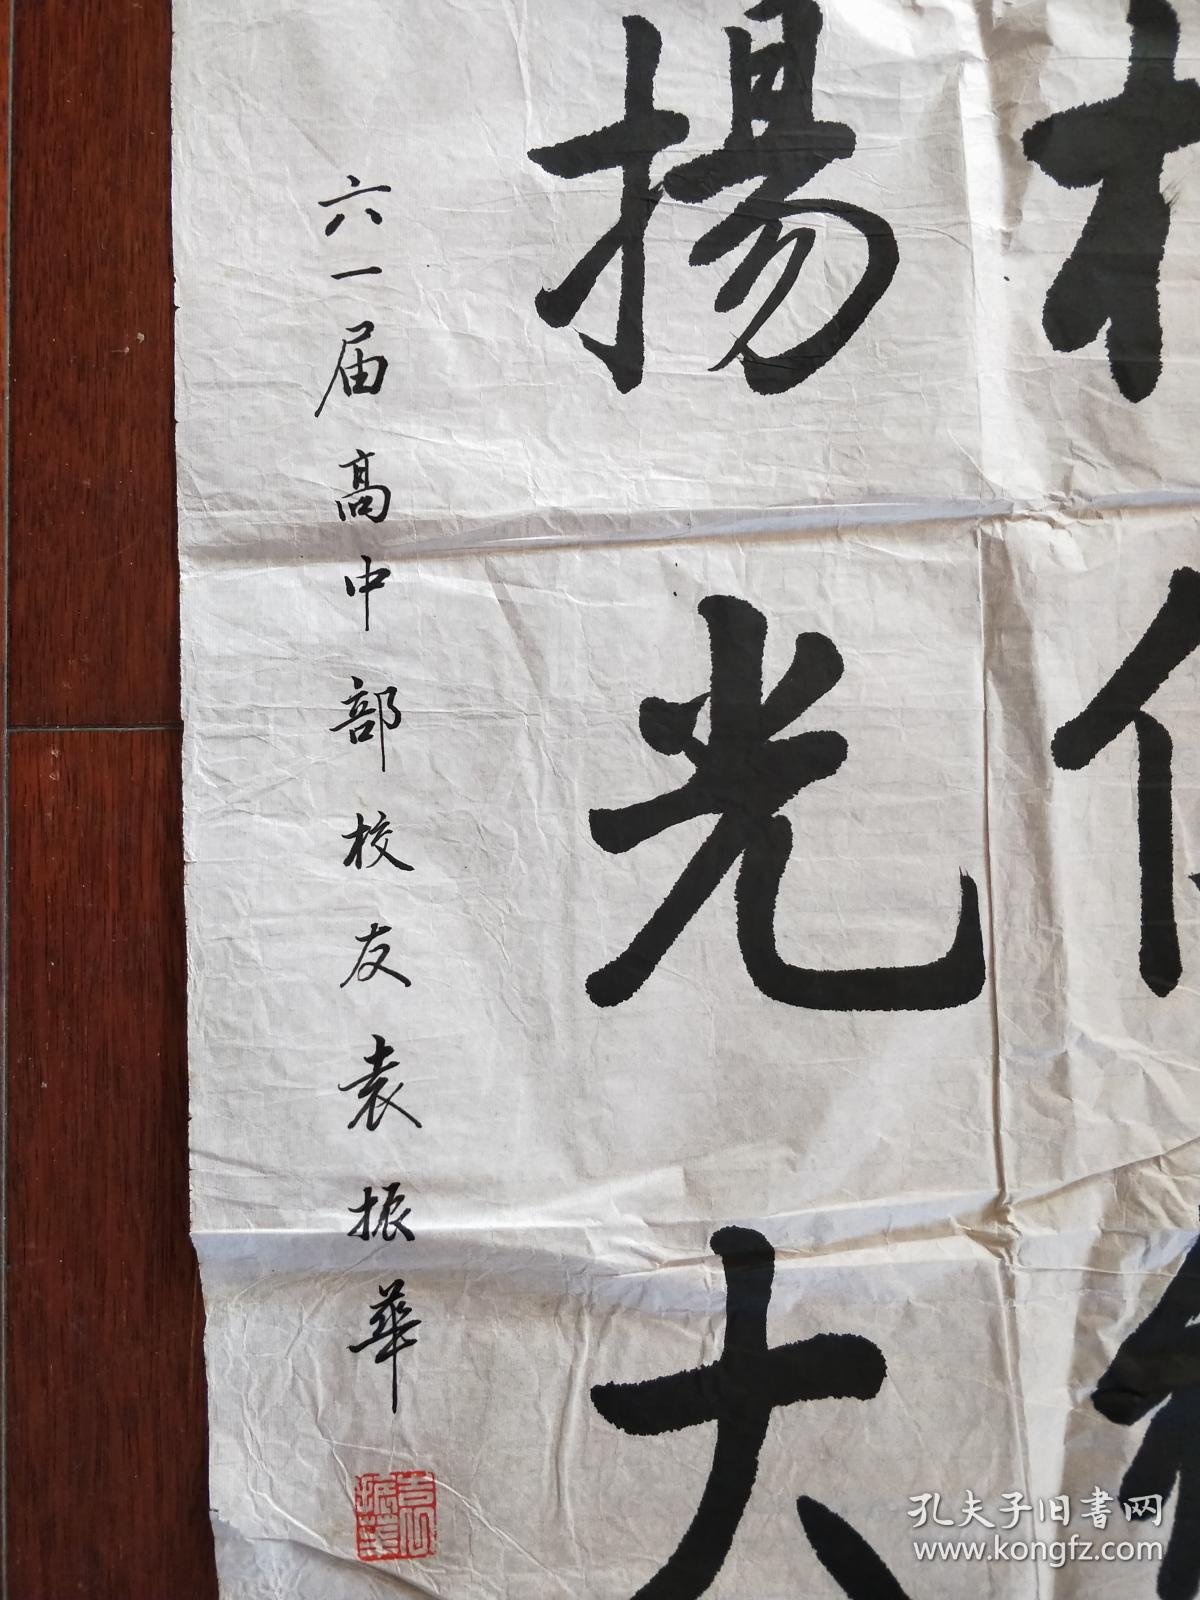 揚光大
六一届高中部校友袁振華
袁振華
孔夫子旧書网
www.kongfz.com